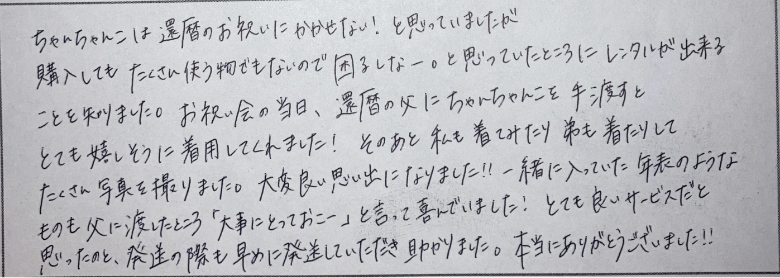 ちゃんちゃんこは還暦のお祝いにかかせない！と思っていましたが
購入しても たくさん使う物でもないので 困るしなー。と思っていたところに レンタルが出来る
ことを知りました。お祝い会の当日、還暦の父にちゃんちゃんこを手渡すと
とても嬉しそうに着用してくれました！そのあと 私も着てみたり 弟も着たりして
たくさん写真を撮りました。大変良い思い出になりました!! 一緒に入っていた年表のような
ものも父に渡したところ「大事にとっておこー」と言って喜んでいました！とても良いサービスだと
思ったのと、発送の際も早めに発送していただき助かりました。本当にありがとうございました!!